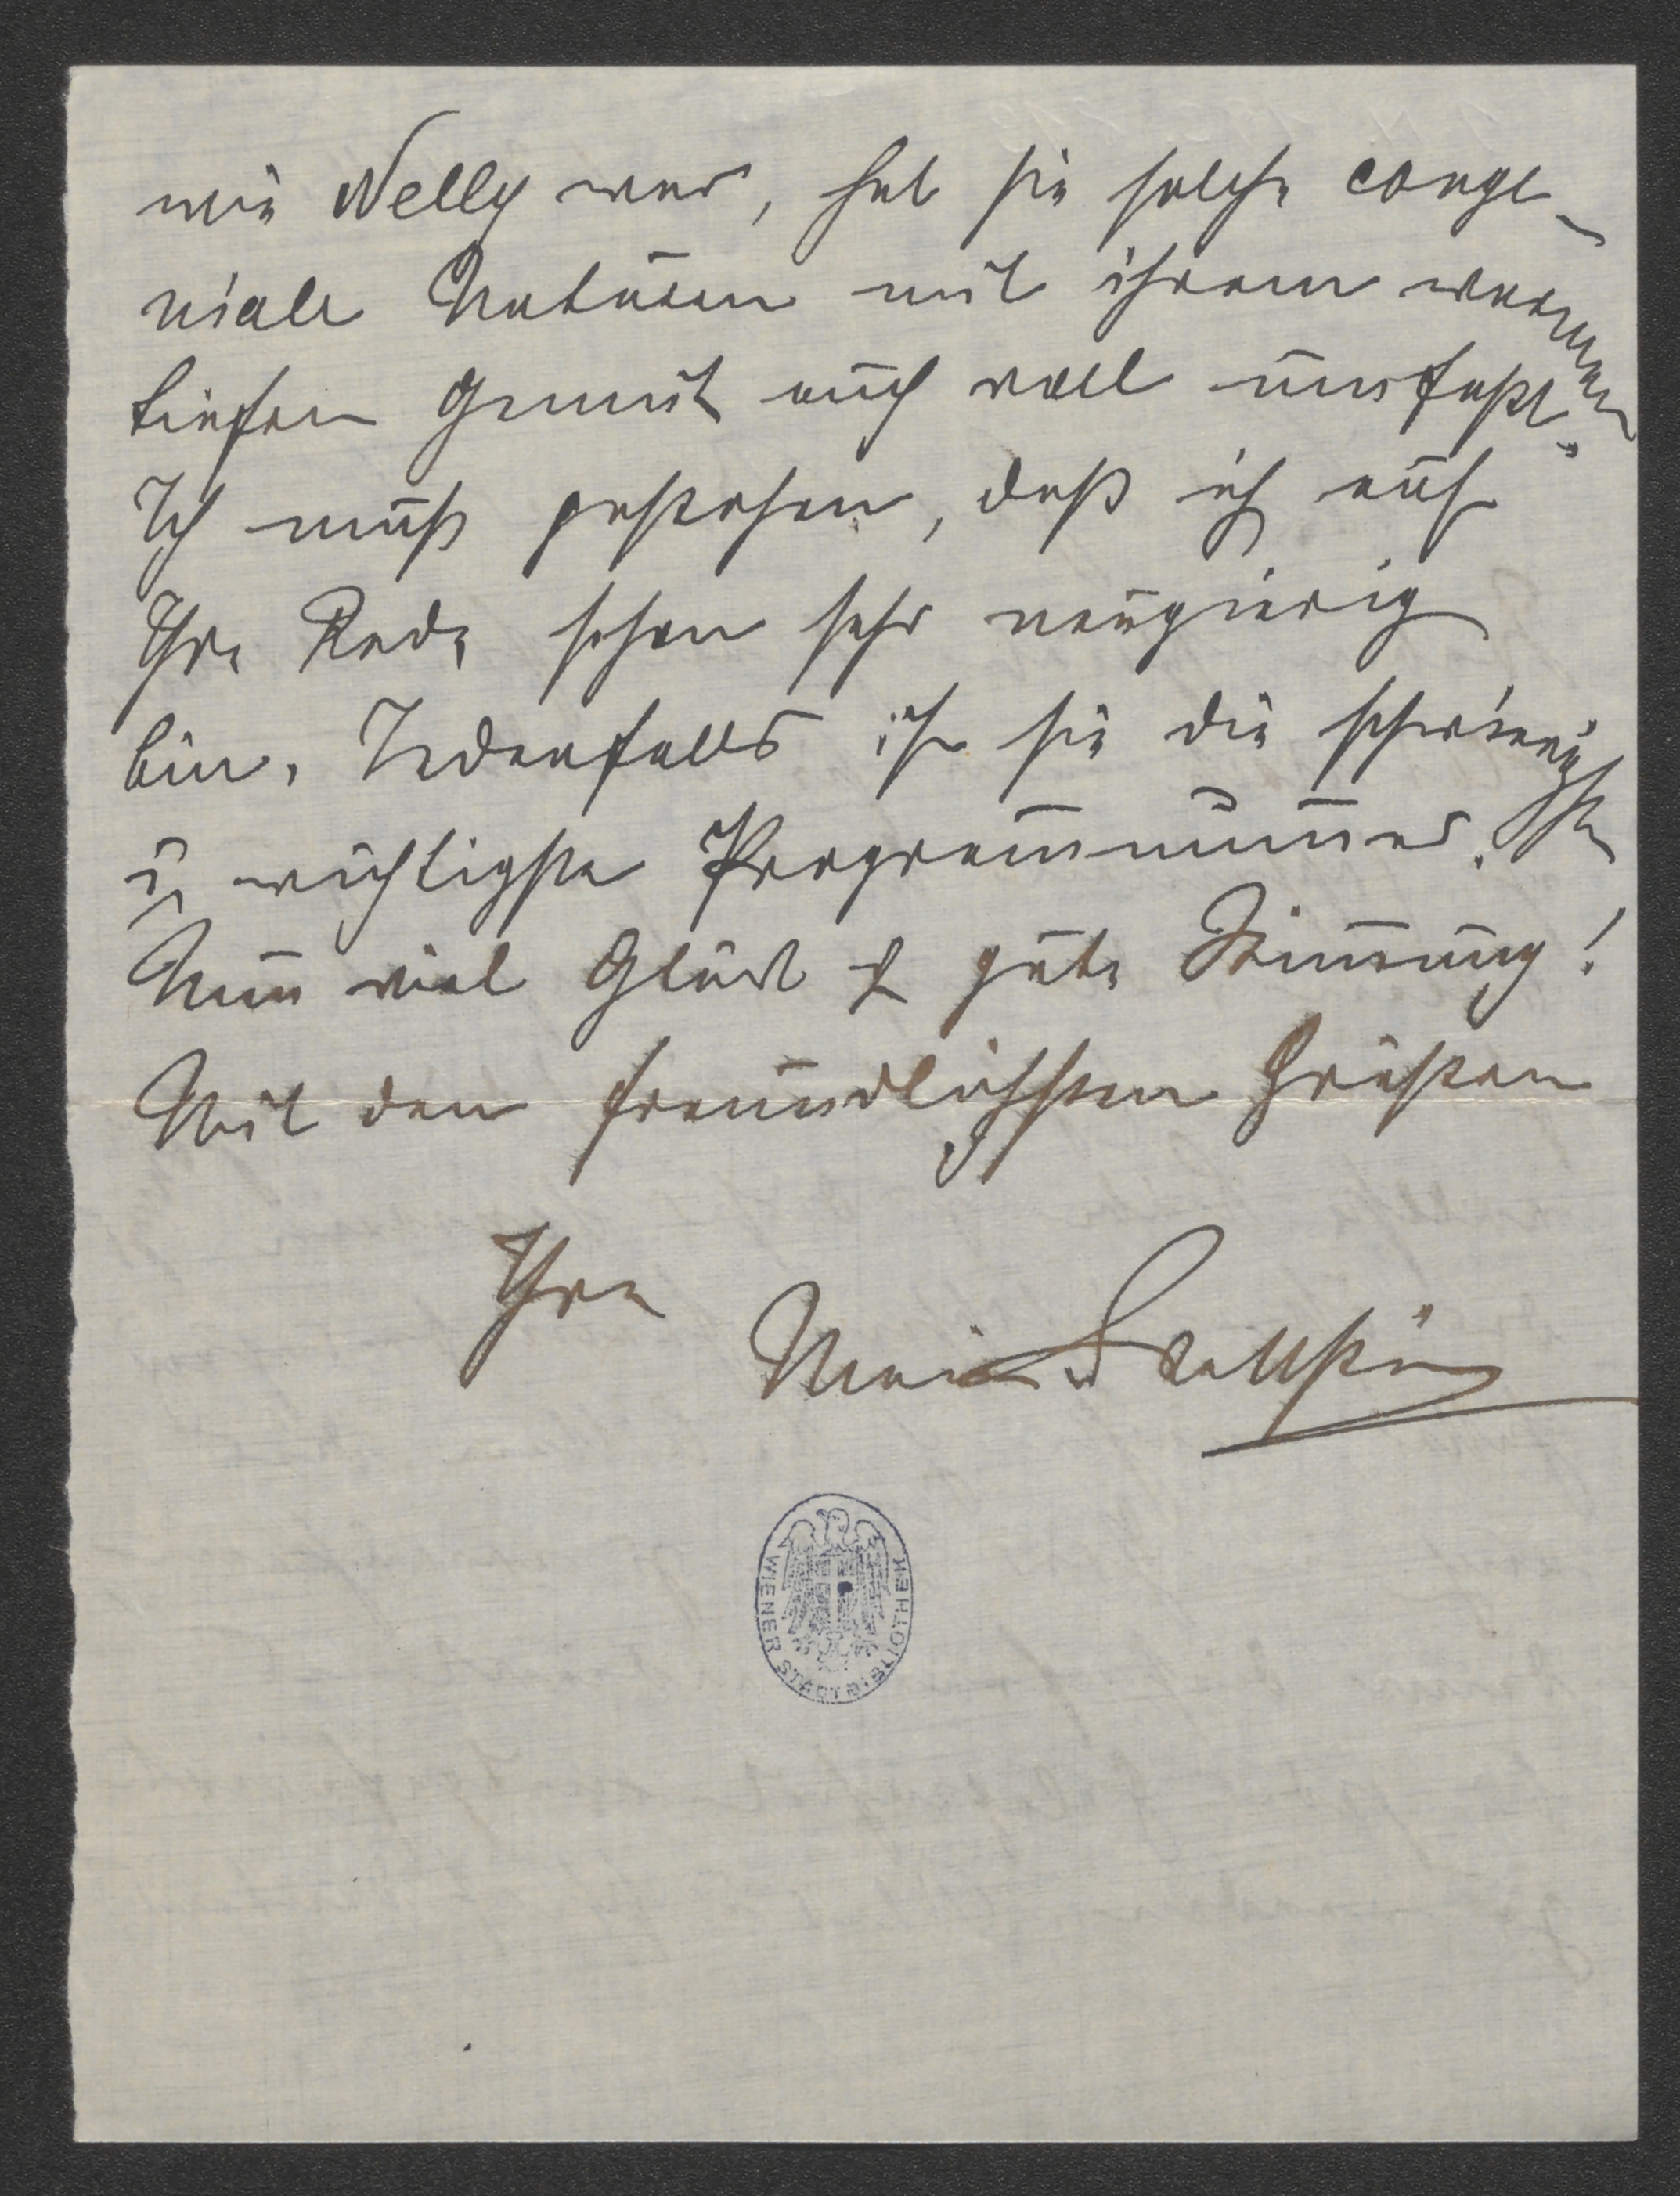 wie Nelly war, hat sie solche conge-
niale Naturen mit ihrem warmen
tiefen Gemüt auch voll umfaßt.
Ich muß gestehen, daß ich auf
Ihre Rede schon sehr neugierig
bin. Jedenfalls ist sie die schwierigste
u wichtigste Programmnum̅er.
Nun viel Glück & gute Stim̅ung!
Mit den freundlichsten Grüßen
Ihre
WIENER STADTBIBLIOTHEK